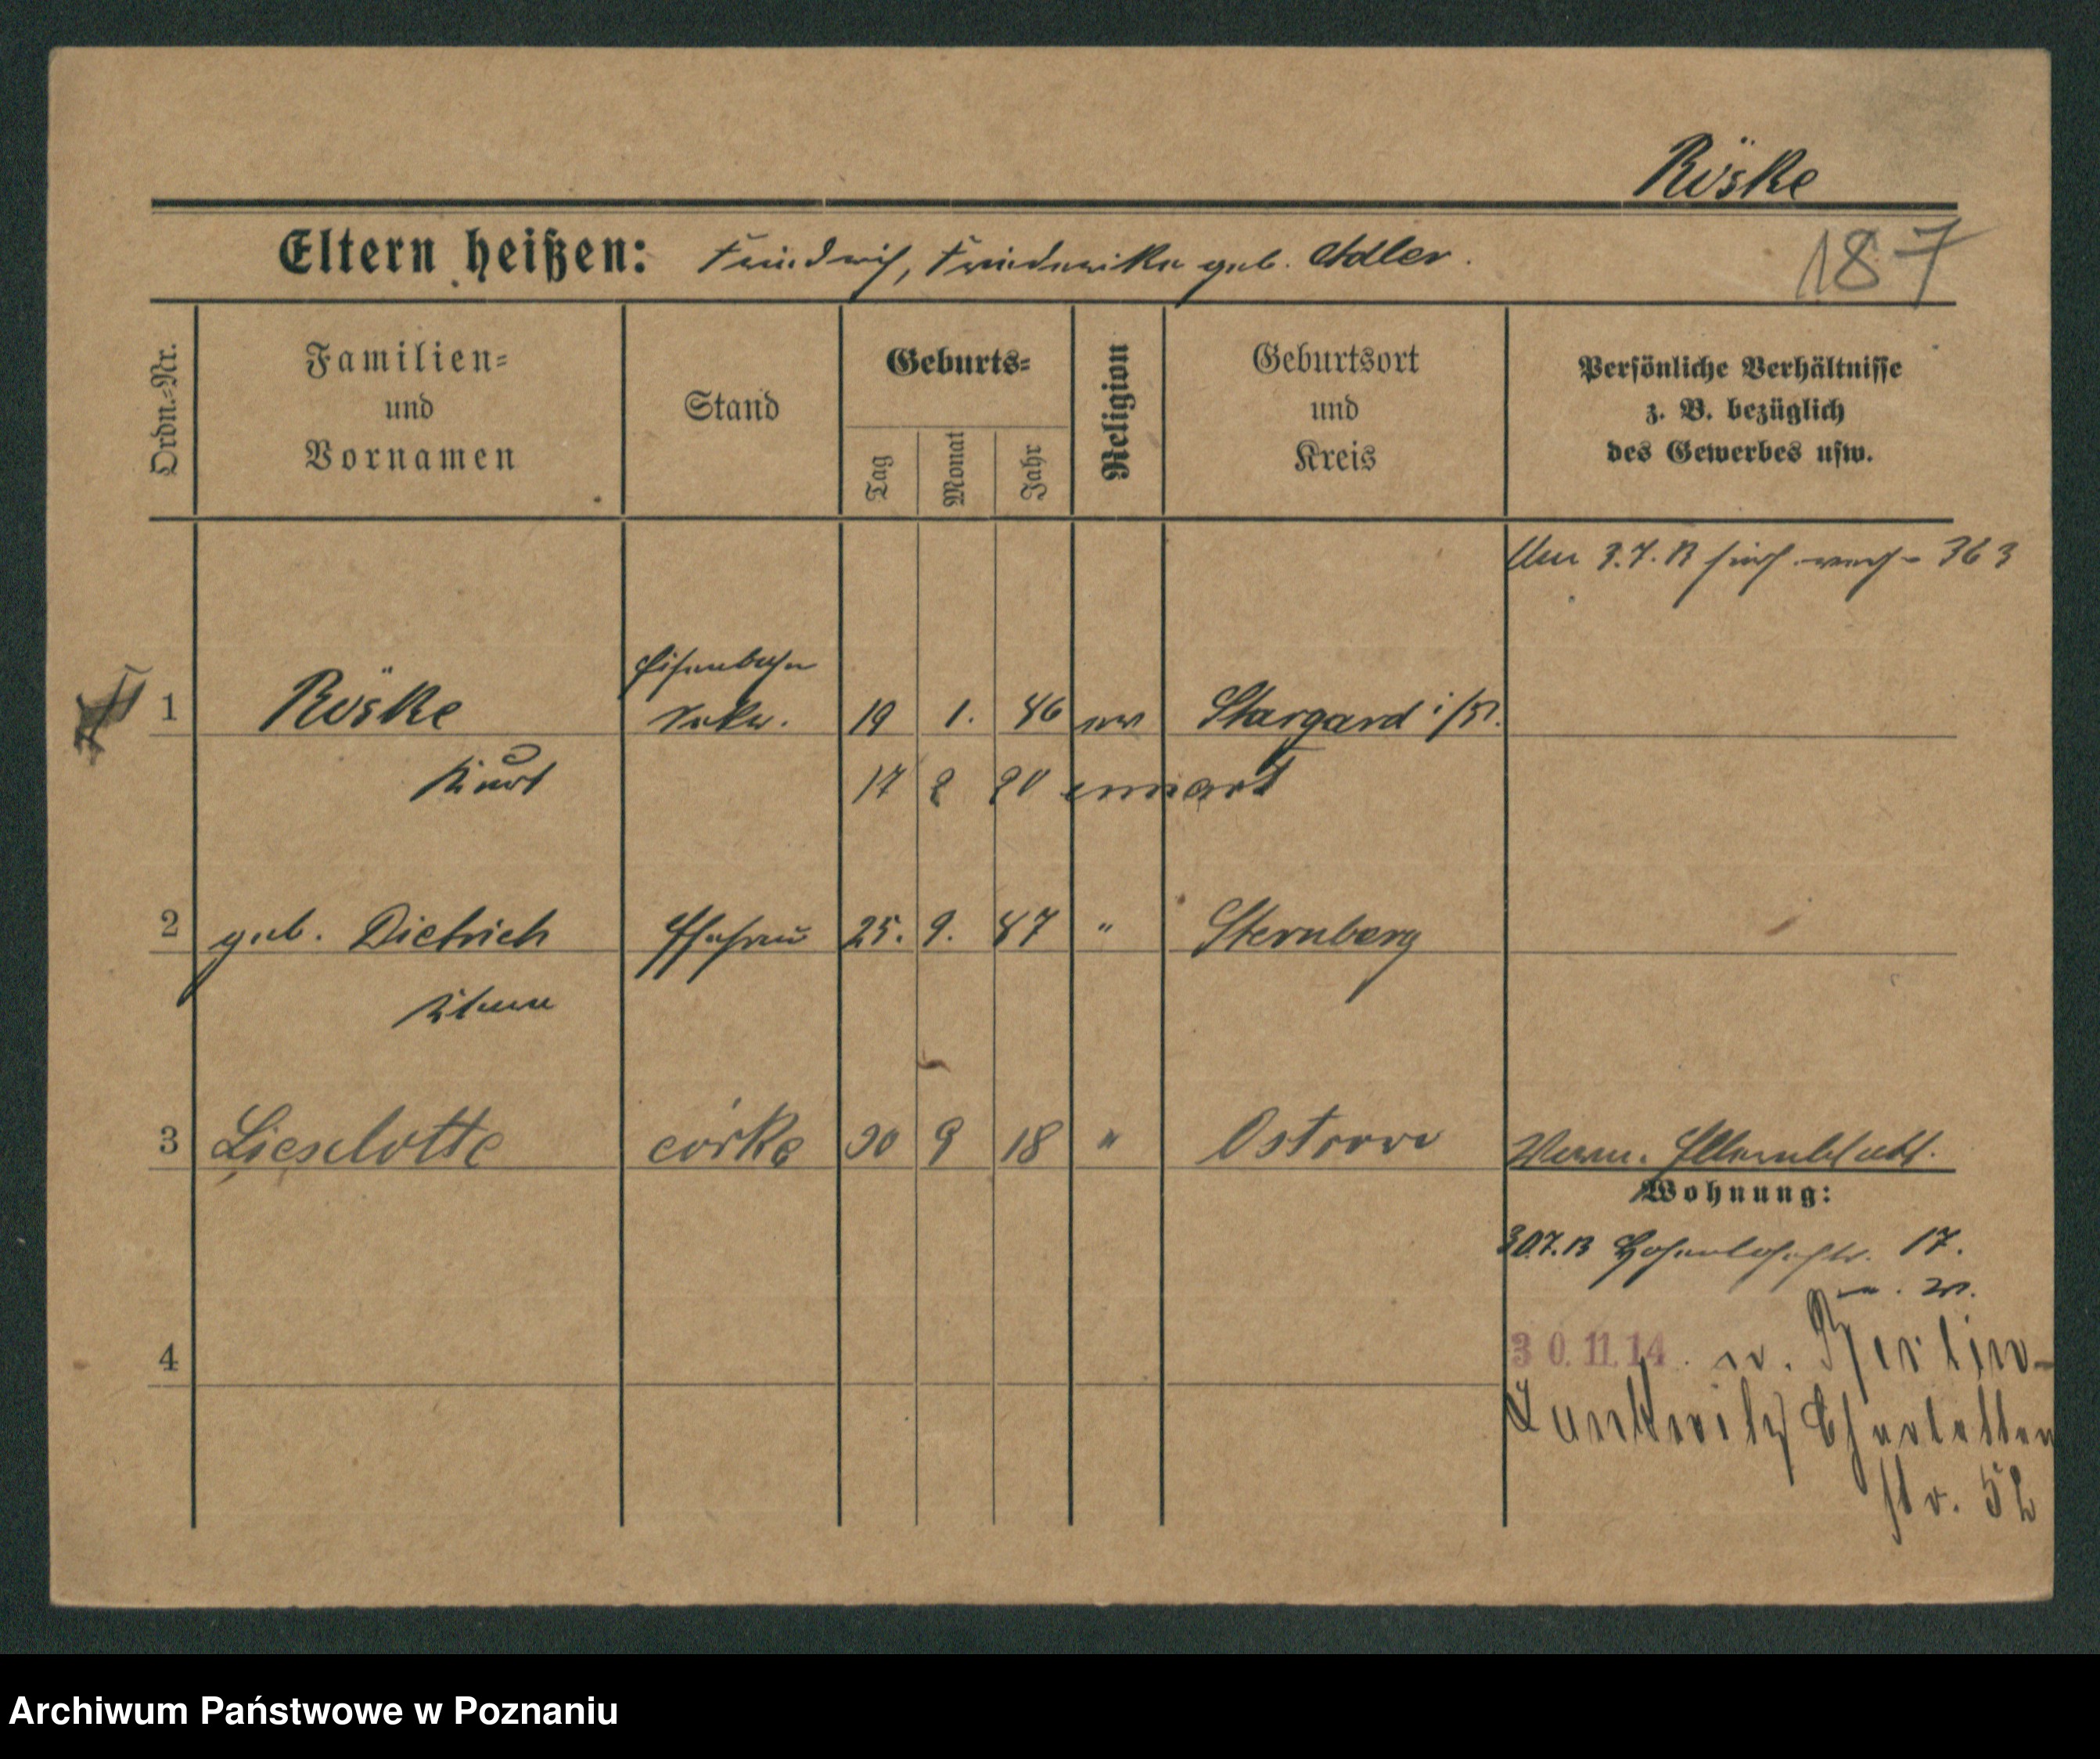 Röske
Eltern heißen: Friedrich, Friederike geb. Adler.
187
Ordn.-Nr.
Familien-
und
Vornamen
Stand
Geburts-
Tag
Monat
Jahr
Religion
Geburtsort
und
Kreis
Persönliche Verhältnisse
z. B. bezüglich
des Gewerbes usw.
3.7.13 363
Eisenbahn
1 Röske Sekr. 19 1. 86 ev Stargard i/P.
Kurt 17 2 20
2 geb. Dietrich Ehefrau 25. 9. 87 " Sternberg
3 Lieselotte córka 30 9 18 " Ostrowo
Wohnung:
30.7.13 Hohenlohestr. 17.
4
30.11.14. n. Berlin-
Lankwitz Charlotten
str. 52
Archiwum Państwowe w Poznaniu